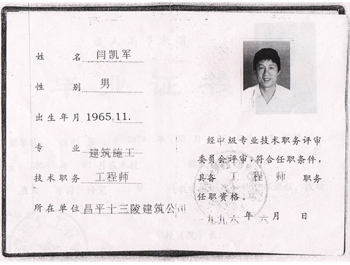 姓名 闫凯军
性别 男
出生年月 1965.11.
专业 建筑施工
技术职务 工程师
所在单位 昌平十三陵建筑公司
经中级专业技术职务评审
委员会评审,符合任职条件,
具备 工程师 职务
任职资格。
一九九六年六月 日